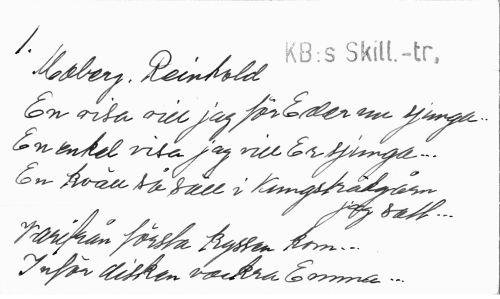 1.
KB:s Skill.-tr,
Moberg, Reinhold
En visa vill jag för Eder nu sjunga...
En enkel visa jag vill Er sjunga...
En kväll så säll i Kungsträdgårn
jag satt...
Varifrån första kyssen kom...
Inför disken vackra Emma...